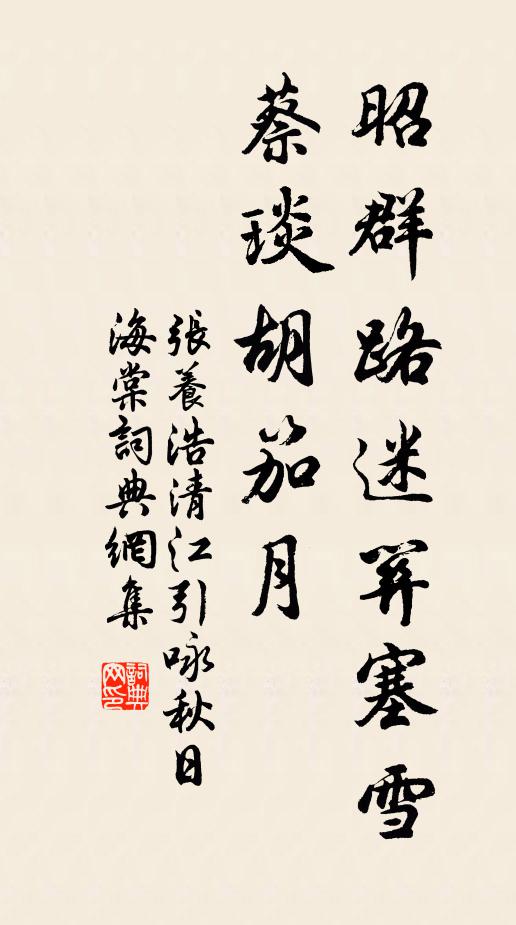 昭群路迷關塞雪
蔡琰胡笳月
張養浩清江引咏秋日
海棠詞典網集
詞典网印